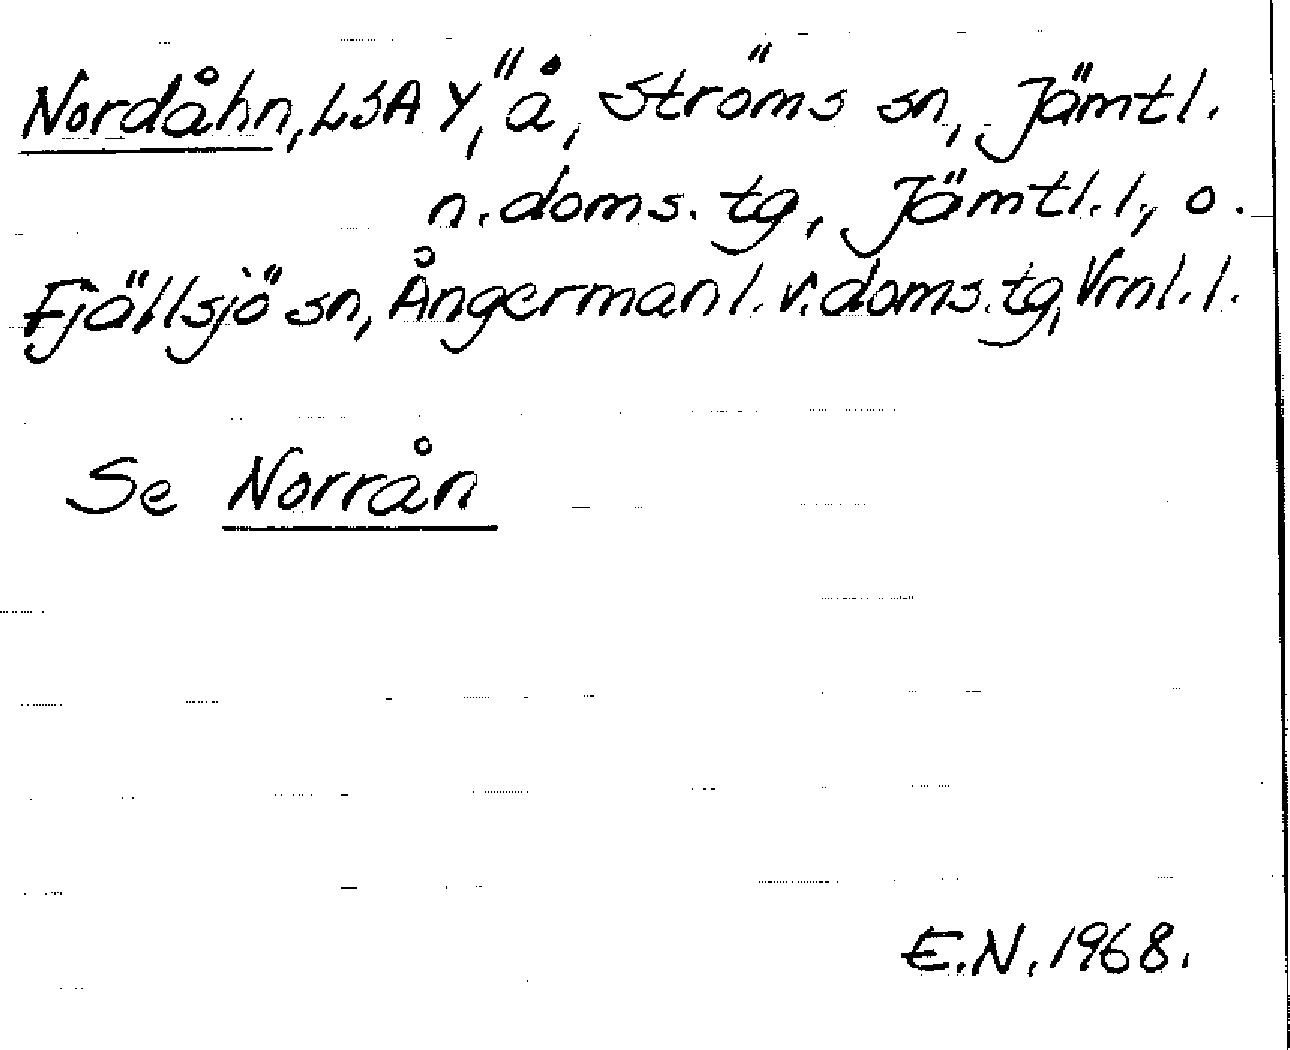 Nordåhn, LSA Y," å, Ströms sn, Jämtl.
n. doms. tg, Jämtl. l., o.
Fjällsjö sn, Ångermanl. v. doms. tg, Vrnl. l.
Se Norrån
E.N. 1968.